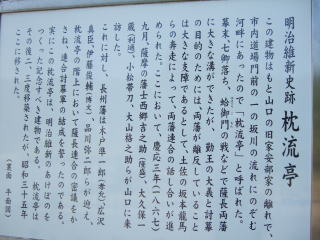 明治維新史跡 枕流亭
この建物はもと山口の旧家安部家の離れで、
市内道場門前の一の坂川の流れにのぞむ
河畔にあったので「枕流亭」と呼ばれた。
幕末、七卿落ち、蛤御門の戦などで薩長両藩
に大きな溝ができたが、勤王の大義と討幕
の目的のためには、両藩が離反していること
は大きな支障であるとして、土佐の坂本龍馬
らの奔走によって、両藩連合の話し合いが進
められた。ここにおいて、慶応三年(一八六七)
九月、薩摩の藩士西郷吉之助(隆盛)、大久保一
蔵(利通)、小松帯刀、大山格之助らが山口に来
訪した。
これに対し、長州藩は木戸準一郎(孝允)、広沢
真臣、伊藤俊輔(博文)、品川弥二郎らが迎え、
枕流亭の階上において薩長連合の密議をか
さね、連合討幕軍の結成を誓ったのである。
実にこの枕流亭は、明治維新のあけぼのを
つくった記念すべき建物である。枕流亭は
その後二度移築されたが、昭和三十五年
ここに移された。
(裏面 平面図)